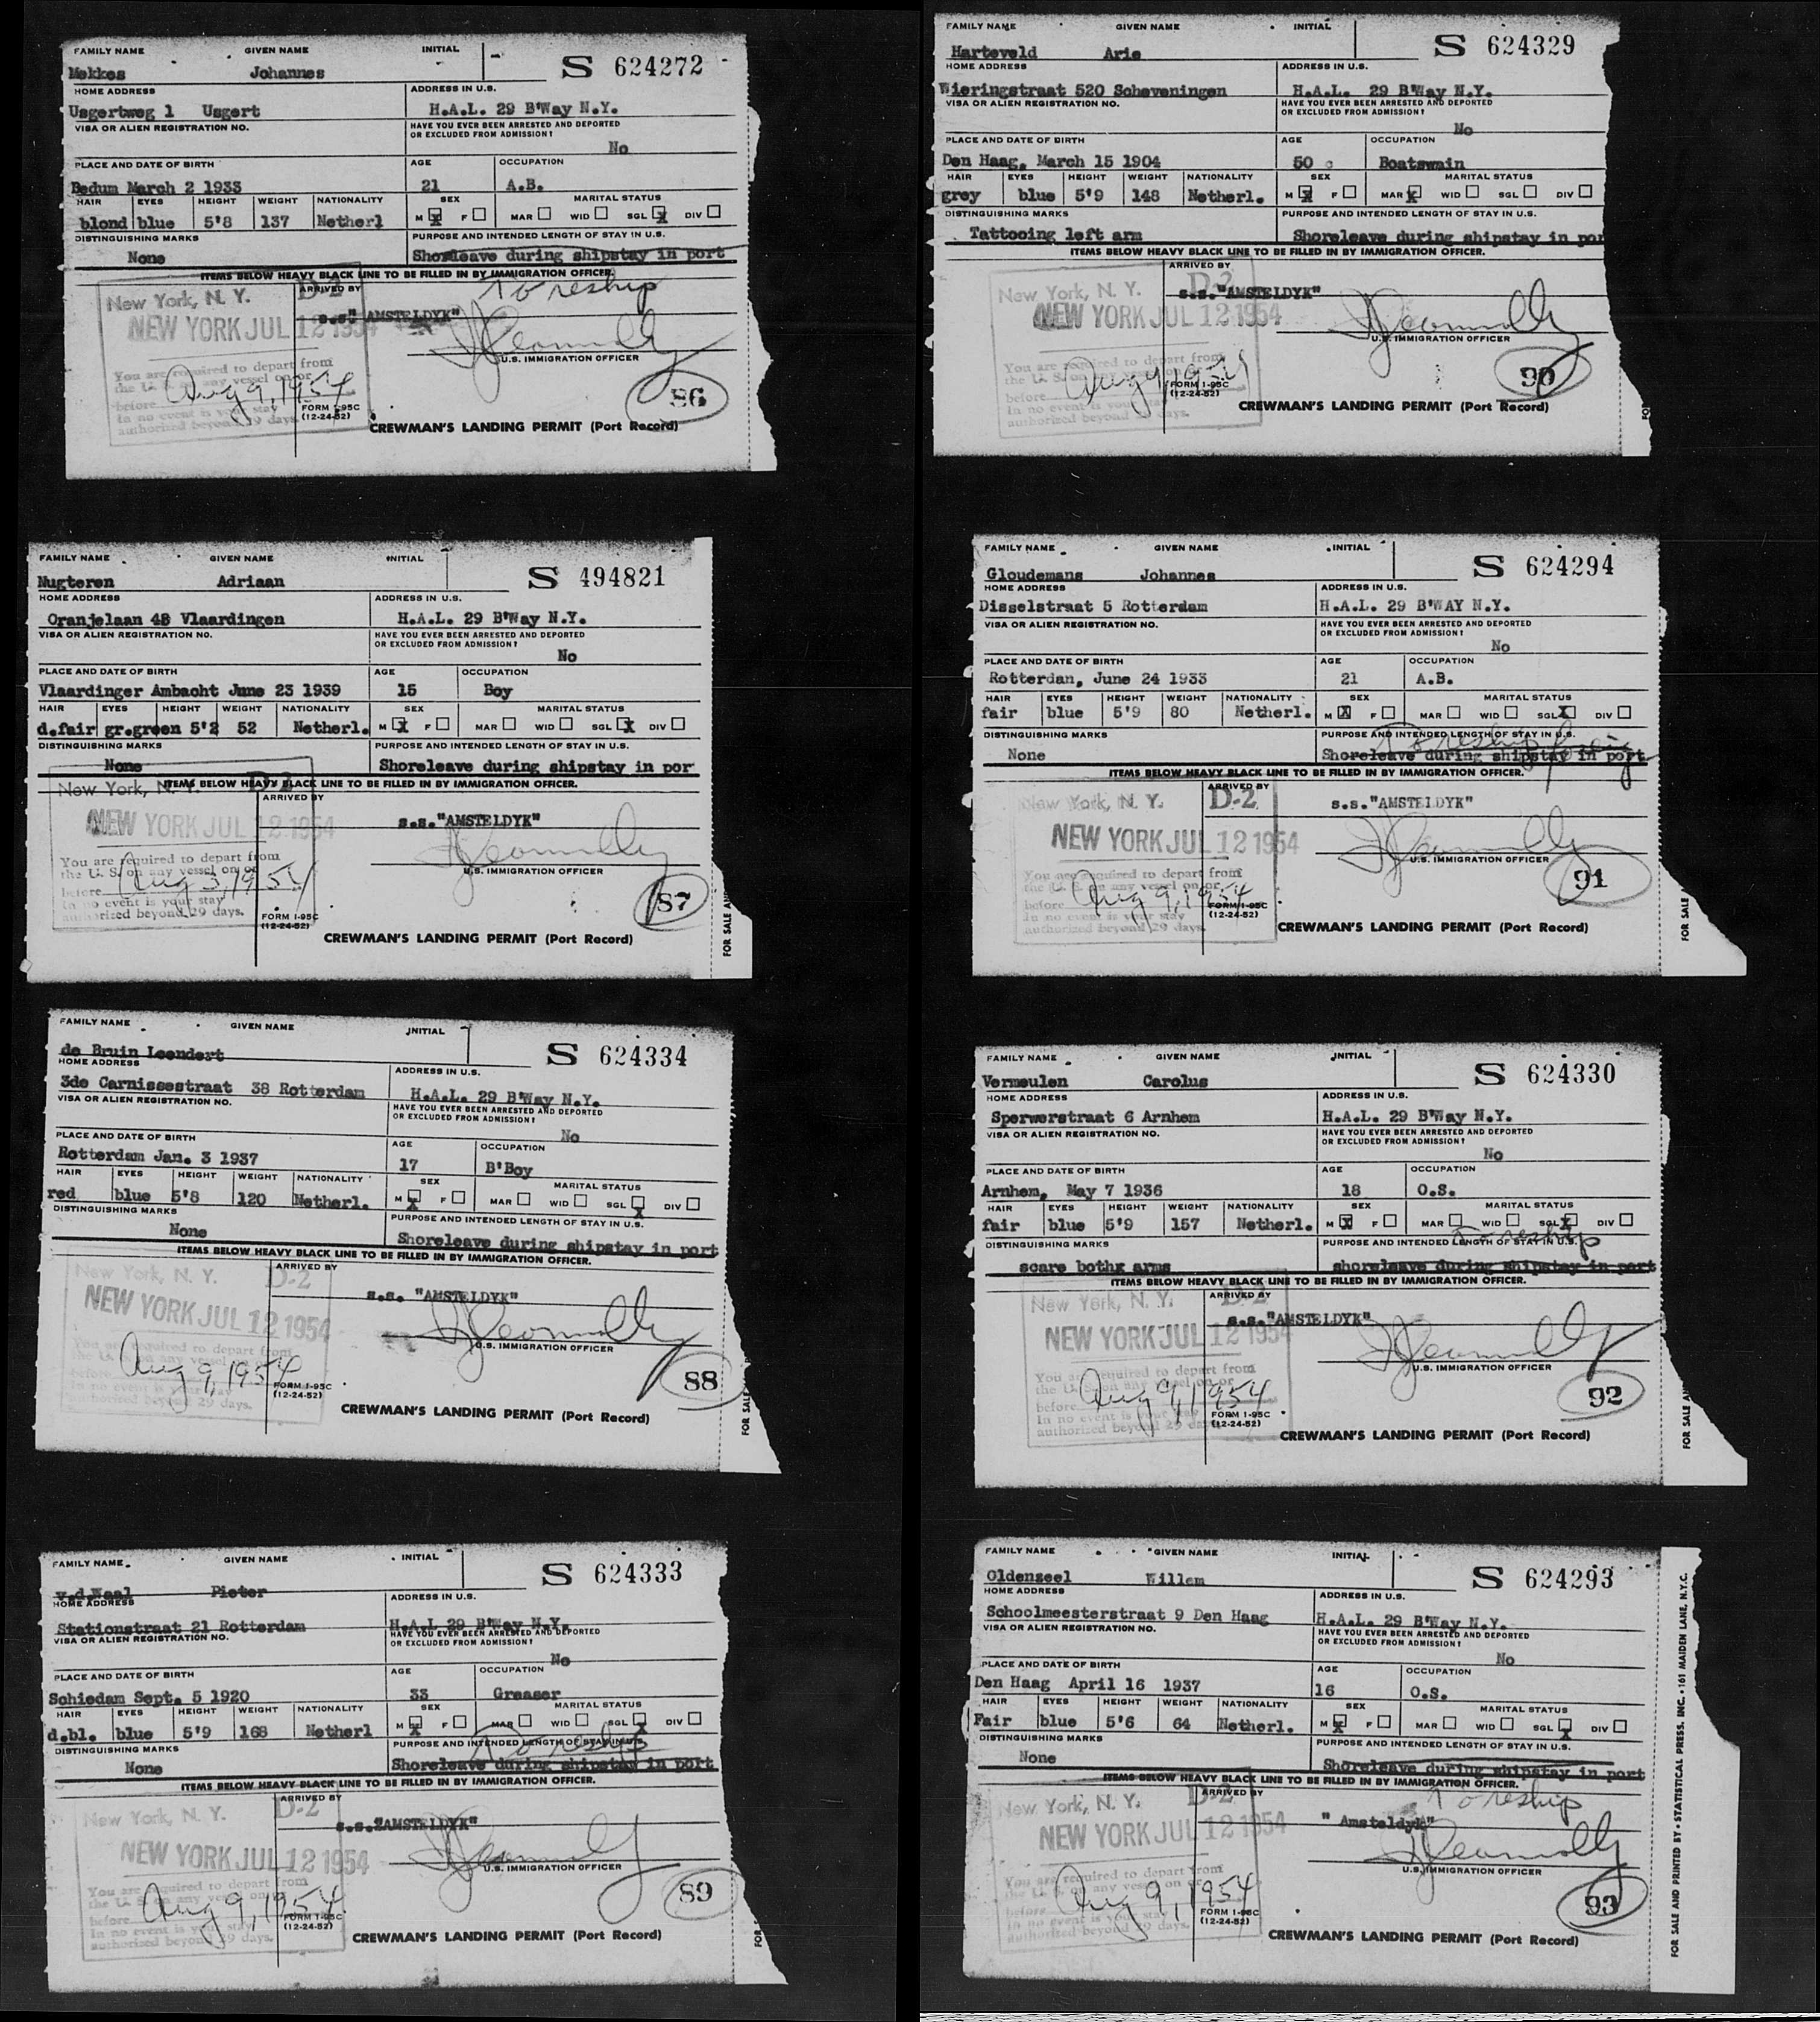 FAMILY NAME GIVEN NAME INITIAL
S 624272
Mekkes Johannes
HOME ADDRESS ADDRESS IN U.S.
Usgertweg 1 Usgert H.A.L. 29 B'Way N.Y.
VISA OR ALIEN REGISTRATION NO. HAVE YOU EVER BEEN ARRESTED AND DEPORTED
OR EXCLUDED FROM ADMISSION?
No
PLACE AND DATE OF BIRTH AGE OCCUPATION
Bedum March 2 1933 21 A.B.
HAIR EYES HEIGHT WEIGHT NATIONALITY SEX MARITAL STATUS
blond blue 5'8 137 Netherl M X F MAR WID SGL X DIV
DISTINGUISHING MARKS PURPOSE AND INTENDED LENGTH OF STAY IN U.S.
None Shoreleave during shipstay in port
ITEMS BELOW HEAVY BLACK LINE TO BE FILLED IN BY IMMIGRATION OFFICER.
To reship
New York, N. Y. D-2 ARRIVED BY
NEW YORK JUL 12 1954 s.s." AMSTELDYK"
U.S. IMMIGRATION OFFICER
You are required to depart from
the U. S. on any vessel on or
before Aug 9, 1954
In no event is your stay
authorized beyond 29 days
FORM I-95C
(12-24-52)
86
CREWMAN'S LANDING PERMIT (Port Record)
FAMILY NAME GIVEN NAME INITIAL
S 494821
Nugteren Adriaan
HOME ADDRESS ADDRESS IN U.S.
Oranjelaan 48 Vlaardingen H.A.L. 29 B'Way N.Y.
VISA OR ALIEN REGISTRATION NO. HAVE YOU EVER BEEN ARRESTED AND DEPORTED
OR EXCLUDED FROM ADMISSION?
No
PLACE AND DATE OF BIRTH AGE OCCUPATION
Vlaardinger Ambacht June 23 1939 15 Boy
HAIR EYES HEIGHT WEIGHT NATIONALITY SEX MARITAL STATUS
d.fair gr.green 5'2 52 Netherl. M X F MAR WID SGL X DIV
DISTINGUISHING MARKS PURPOSE AND INTENDED LENGTH OF STAY IN U.S.
None Shoreleave during shipstay in por
ITEMS BELOW HEAVY BLACK LINE TO BE FILLED IN BY IMMIGRATION OFFICER.
New York, N. Y. D-2 ARRIVED BY
NEW YORK JUL 12 1954 s.s."AMSTELDYK"
U.S. IMMIGRATION OFFICER
You are required to depart from
the U. S. on any vessel on or
before Aug 1954
In no event is your stay
authorized beyond 29 days.
FORM I-95C
(12-24-52)
87
CREWMAN'S LANDING PERMIT (Port Record)
FOR SALE AN
FAMILY NAME GIVEN NAME INITIAL
S 624334
de Bruin Leendert
HOME ADDRESS ADDRESS IN U.S.
3de Carnissestraat 38 Rotterdam H.A.L. 29 B'Way N.Y.
VISA OR ALIEN REGISTRATION NO. HAVE YOU EVER BEEN ARRESTED AND DEPORTED
OR EXCLUDED FROM ADMISSION?
No
PLACE AND DATE OF BIRTH AGE OCCUPATION
Rotterdam Jan. 3 1937 17 B'Boy
HAIR EYES HEIGHT WEIGHT NATIONALITY SEX MARITAL STATUS
red blue 5'8 120 Netherl. M X F MAR WID SGL X DIV
DISTINGUISHING MARKS PURPOSE AND INTENDED LENGTH OF STAY IN U.S.
None Shoreleave during shipstay in port
ITEMS BELOW HEAVY BLACK LINE TO BE FILLED IN BY IMMIGRATION OFFICER.
New York, N. Y. D-2 ARRIVED BY
NEW YORK JUL 12 1954 s.s. "AMSTELDYK"
U.S. IMMIGRATION OFFICER
You are required to depart from
the U. S. on any vessel on or
before Aug 9, 1954
In no event is your stay
authorized beyond 29 days.
FORM I-95C
(12-24-52)
88
CREWMAN'S LANDING PERMIT (Port Record)
FOR SALE
FAMILY NAME GIVEN NAME INITIAL
S 624333
v.d.Waal Pieter
HOME ADDRESS ADDRESS IN U.S.
Stationstraat 21 Rotterdam H.A.L 29 B'Way N.Y.
VISA OR ALIEN REGISTRATION NO. HAVE YOU EVER BEEN ARRESTED AND DEPORTED
OR EXCLUDED FROM ADMISSION?
No
PLACE AND DATE OF BIRTH AGE OCCUPATION
Schiedam Sept. 5 1920 33 Greaser
HAIR EYES HEIGHT WEIGHT NATIONALITY SEX MARITAL STATUS
d.bl. blue 5'9 168 Netherl M X F MAR WID SGL X DIV
To reship
DISTINGUISHING MARKS PURPOSE AND INTENDED LENGTH OF STAY IN U.S.
None Shoreleave during shipstay in port
ITEMS BELOW HEAVY BLACK LINE TO BE FILLED IN BY IMMIGRATION OFFICER.
New York, N. Y. D-2 ARRIVED BY
NEW YORK JUL 12 1954 s.s."AMSTELDYK"
U.S. IMMIGRATION OFFICER
You are required to depart from
the U. S. on any vessel on or
before Aug 9, 1954
In no event is your stay
authorized beyond 29 days.
FORM I-95C
(12-24-52)
89
CREWMAN'S LANDING PERMIT (Port Record)
FOR
FAMILY NAME GIVEN NAME INITIAL
S 624329
Harteveld Arie
HOME ADDRESS ADDRESS IN U.S.
Wieringstraat 520 Scheveningen H.A.L. 29 B'Way N.Y.
VISA OR ALIEN REGISTRATION NO. HAVE YOU EVER BEEN ARRESTED AND DEPORTED
OR EXCLUDED FROM ADMISSION?
No
PLACE AND DATE OF BIRTH AGE OCCUPATION
Den Haag, March 15 1904 50 Boatswain
HAIR EYES HEIGHT WEIGHT NATIONALITY SEX MARITAL STATUS
grey blue 5'9 148 Netherl. M X F MAR X WID SGL DIV
DISTINGUISHING MARKS PURPOSE AND INTENDED LENGTH OF STAY IN U.S.
Tattooing left arm Shoreleave during shipstay in por
ITEMS BELOW HEAVY BLACK LINE TO BE FILLED IN BY IMMIGRATION OFFICER.
New York, N. Y. D-2 ARRIVED BY
NEW YORK JUL 12 1954 s.s."AMSTELDYK"
U.S. IMMIGRATION OFFICER
You are required to depart from
the U. S. on any vessel on or
before Aug 9, 1954
In no event is your stay
authorized beyond 29 days.
FORM I-95C
(12-24-52)
90
CREWMAN'S LANDING PERMIT (Port Record)
FOR
FAMILY NAME GIVEN NAME INITIAL
S 624294
Gloudemans Johannes
HOME ADDRESS ADDRESS IN U.S.
Disselstraat 5 Rotterdam H.A.L. 29 B'WAY N.Y.
VISA OR ALIEN REGISTRATION NO. HAVE YOU EVER BEEN ARRESTED AND DEPORTED
OR EXCLUDED FROM ADMISSION?
No
PLACE AND DATE OF BIRTH AGE OCCUPATION
Rotterdan, June 24 1933 21 A.B.
HAIR EYES HEIGHT WEIGHT NATIONALITY SEX MARITAL STATUS
fair blue 5'9 80 Netherl. M X F MAR WID SGL X DIV
DISTINGUISHING MARKS PURPOSE AND INTENDED LENGTH OF STAY IN U.S.
To reship
None Shoreleave during shipstay in port
ITEMS BELOW HEAVY BLACK LINE TO BE FILLED IN BY IMMIGRATION OFFICER.
New York, N. Y. D-2 ARRIVED BY
NEW YORK JUL 12 1954 s.s."AMSTELDYK"
U.S. IMMIGRATION OFFICER
You are required to depart from
the U. S. on any vessel on or
before Aug 9, 1954
In no event is your stay
authorized beyond 29 days.
FORM I-95C
(12-24-52)
91
CREWMAN'S LANDING PERMIT (Port Record)
FOR SALE
FAMILY NAME GIVEN NAME INITIAL
S 624330
Vermeulen Carolus
HOME ADDRESS ADDRESS IN U.S.
Sperwerstraat 6 Arnhem H.A.L. 29 B'Way N.Y.
VISA OR ALIEN REGISTRATION NO. HAVE YOU EVER BEEN ARRESTED AND DEPORTED
OR EXCLUDED FROM ADMISSION?
No
PLACE AND DATE OF BIRTH AGE OCCUPATION
Arnhem, May 7 1936 18 O.S.
HAIR EYES HEIGHT WEIGHT NATIONALITY SEX MARITAL STATUS
fair blue 5'9 157 Netherl. M X F MAR WID SGL X DIV
To reship
DISTINGUISHING MARKS PURPOSE AND INTENDED LENGTH OF STAY IN U.S.
scare bothx arms shoreleave during shipstay in port
ITEMS BELOW HEAVY BLACK LINE TO BE FILLED IN BY IMMIGRATION OFFICER.
New York, N. Y. D-2 ARRIVED BY
NEW YORK JUL 12 1954 s.s."AMSTELDYK"
U.S. IMMIGRATION OFFICER
You are required to depart from
the U. S. on any vessel on or
before Aug 9, 1954
In no event is your stay
authorized beyond 29 days
FORM I-95C
(12-24-52)
92
CREWMAN'S LANDING PERMIT (Port Record)
FOR SALE AN
FAMILY NAME GIVEN NAME INITIAL
S 624293
Oldenzeel Willem
HOME ADDRESS ADDRESS IN U.S.
Schoolmeesterstraat 9 Den Haag H.A.L. 29 B'Way N.Y.
VISA OR ALIEN REGISTRATION NO. HAVE YOU EVER BEEN ARRESTED AND DEPORTED
OR EXCLUDED FROM ADMISSION?
No
PLACE AND DATE OF BIRTH AGE OCCUPATION
Den Haag April 16 1937 16 O.S.
HAIR EYES HEIGHT WEIGHT NATIONALITY SEX MARITAL STATUS
Fair blue 5'6 64 Netherl. M X F MAR WID SGL X DIV
DISTINGUISHING MARKS PURPOSE AND INTENDED LENGTH OF STAY IN U.S.
None Shoreleave during shipstay in port
ITEMS BELOW HEAVY BLACK LINE TO BE FILLED IN BY IMMIGRATION OFFICER.
To reship
New York, N. Y. D-2 ARRIVED BY
NEW YORK JUL 12 1954 " Amsteldyk"
U.S. IMMIGRATION OFFICER
You are required to depart from
the U. S. on any vessel on or
before Aug 9, 1954
In no event is your stay
authorized beyond 29 days.
FORM I-95C
(12-24-52)
93
CREWMAN'S LANDING PERMIT (Port Record)
FOR SALE AND PRINTED BY • STATISTICAL PRESS, INC. • 161 MAIDEN LANE, N.Y.C.